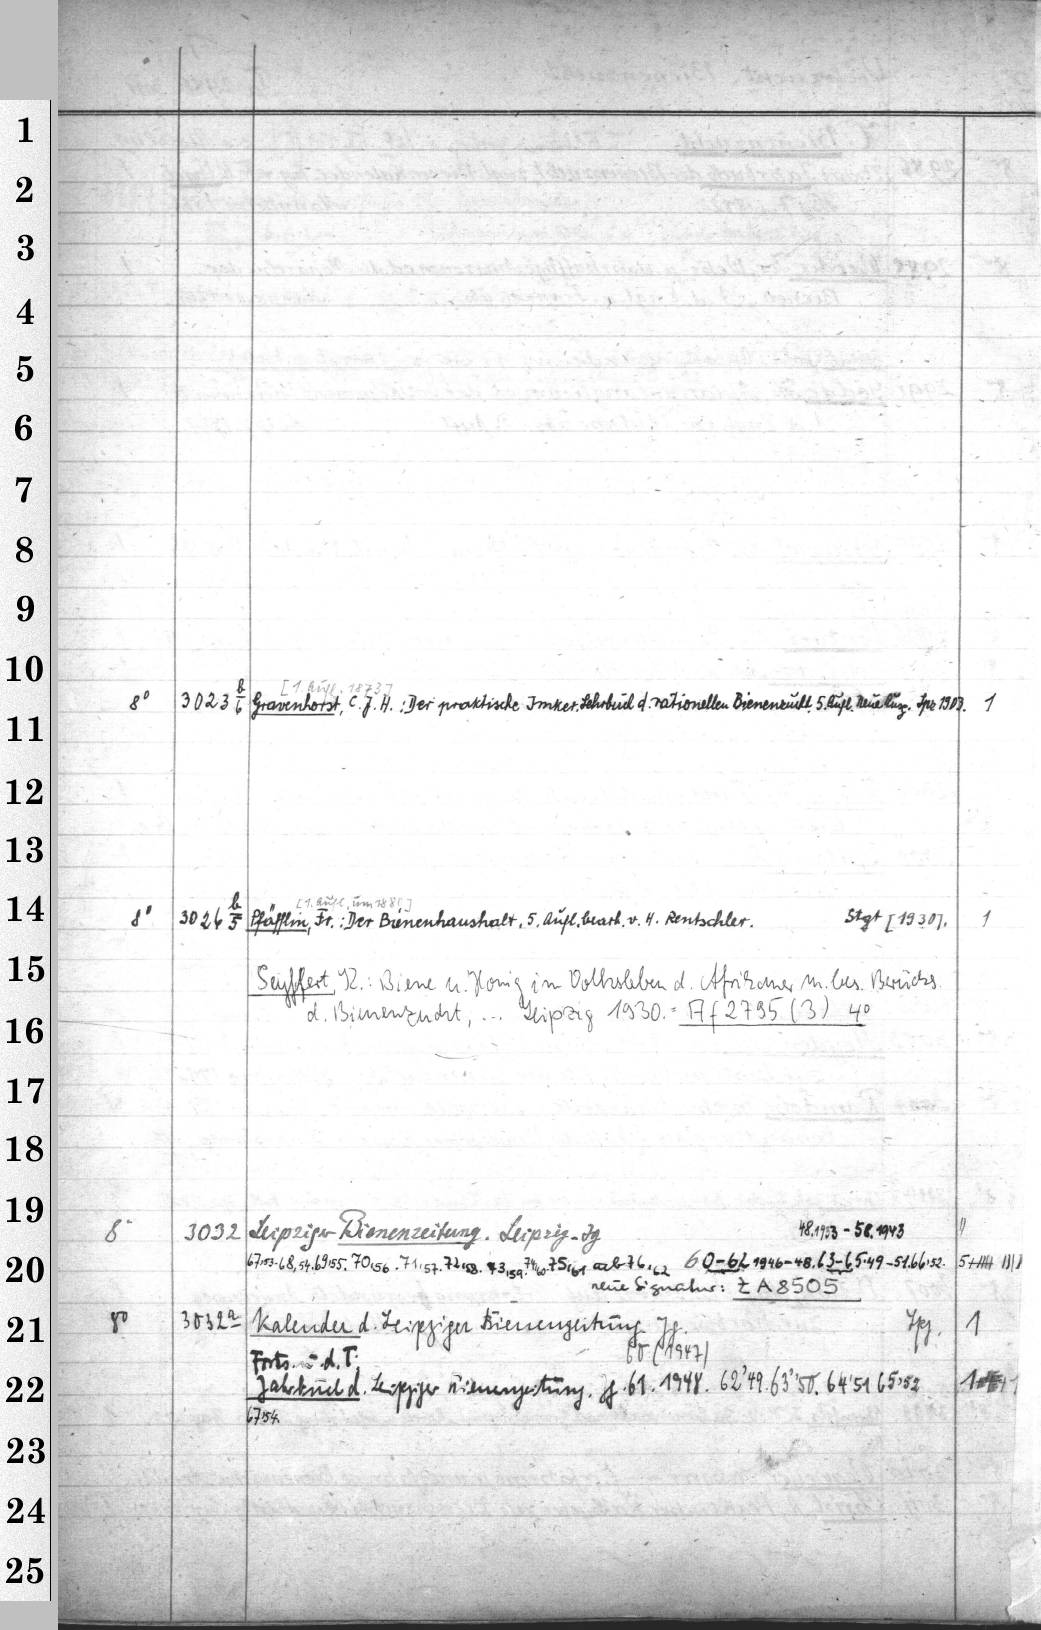 1
2
3
4
5
6
7
8
9
10
[1. Aufl. 1873]
8° 3023 b/6 Gravenhorst, C. J. H.: Der praktische Imker. Lehrbuch d. rationellen Bienenzucht. 5. Aufl. Neue Ausg. Lpz 1903. 1
11
12
13
14
[1. Aufl. um 1880]
8° 3026 b/5 Pfäfflin, Fr.: Der Bienenhaushalt. 5. Aufl. bearb. v. H. Rentschler. Stgt [1930]. 1
15
Seyffert, K.: Biene u. Honig im Volksleben d. Afrikaner m. bes. Berücks.
d. Bienenzucht, ... Leipzig 1930. = Af 2795 (3) 4°
16
17
18
19
8° 3032 Leipziger Bienenzeitung. Leipzig. Jg 48.1933 - 58.1943
20
67,53-68,54.69,55. 70,56. 71,57. 72,58. 73,59. 74,60. 75,61 ab 76,62 60-62 1946-48. 63-65.49-51.66,52.
neue Signatur: ZA 8505
21
8° 3032a Kalender d. Leipziger Bienenzeitung. Jg. Lpz. 1
60 (1947)
Forts. u. d. T.
22
Jahrbuch d. Leipziger Bienenzeitung. Jg. 61. 1948. 62'49. 63'50. 64'51 65,52
67,54.
23
24
25